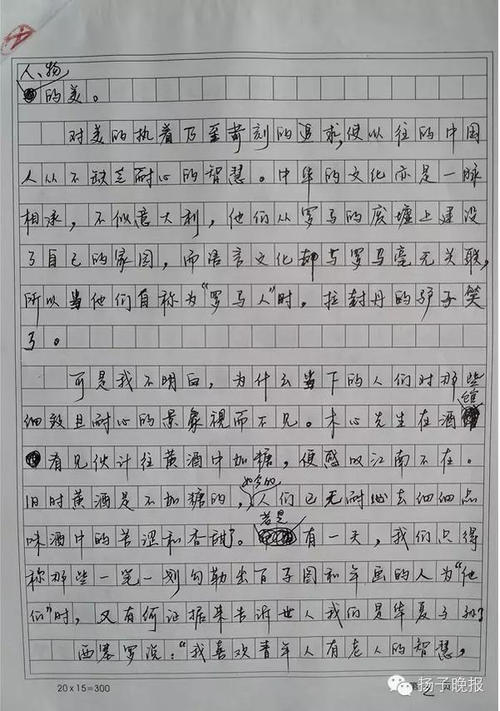 人物
的美。
对美的执着乃至苛刻的追求,使以往的中国
人从不缺乏耐心的智慧。中华的文化亦是一脉
相承,不似意大利,他们从罗马的废墟上建设
了自己的家园,而语言文化却与罗马毫无关联,
所以当他们自称为“罗马人”时,拉封丹的驴子笑
了。
可是我不明白,为什么当下的人们对那些
细致且耐心的景象视而不见。木心先生在酒馆
看见伙计往黄酒中加糖,便感叹江南不在。
旧时黄酒是不加糖的,如今的人们已无耐心去细细品
味酒中的苦涩和香甜了。若是有一天,我们只得
称那些一笔一划勾勒出百子图和年画的人为“他
们”时,又有何证据来告诉世人我们是华夏子孙?
西塞罗说:“我喜欢青年人有老人的智慧,
20×15=300
扬子晚报